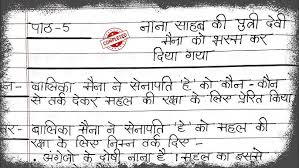 पाठ-5
नाना साहब की पुत्री देवी
मैना को भस्म कर
दिया गया
COMPLETED
न- बालिका मैना ने सेनापति 'हे' को कौन-कौन
से तर्क देकर महल की रक्षा के लिए प्रेरित किया
बालिका मैना ने सेनापति 'हे' को महल की
रक्षा के लिए निम्न तर्क दिए -
अंग्रेजों के दोषी नाना हैं। महल का इससे